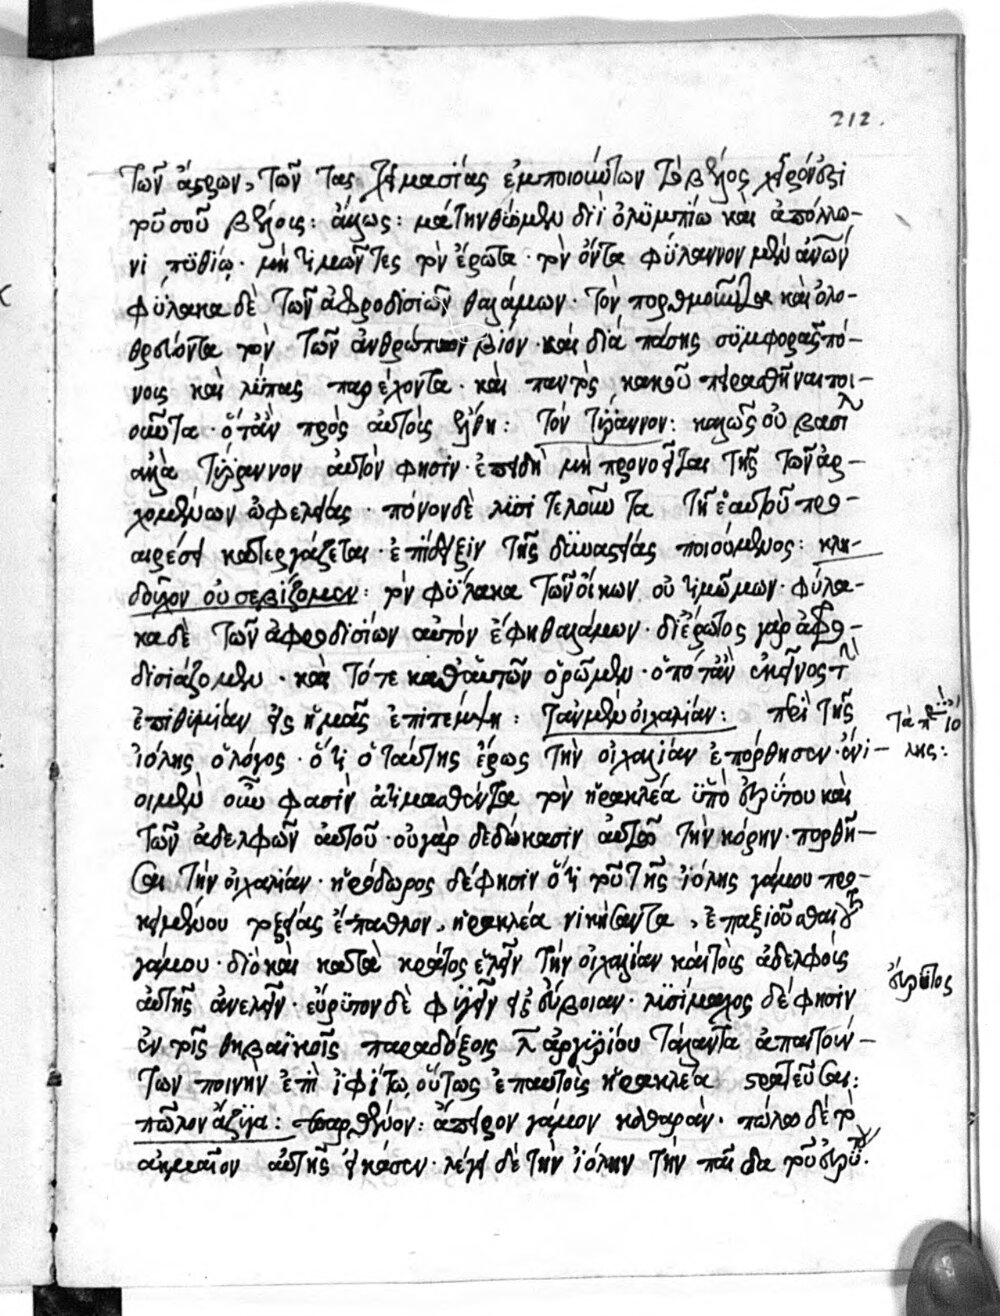 212.
τῶν ἄστρων, τῶν τὰς χειμασίας ἐμποιούντων τὸ βέλος χεῖρόν ἐστι
τοῦ σοῦ βέλοις: ἄλλως: μάτην θύομεν διὶ ὀλυμπίω καὶ ἀπόλλω-
νι πυθίῳ· μὴ τιμῶντες τὸν ἔρωτα· τὸν ὄντα τύραννον μὲν ἀνῶν
φύλακα δὲ τῶν ἀφροδισίων θαλάμων· τὸν πορθμοῦντα καὶ ὀλο-
θρεύοντα τὸν τῶν ἀνθρώπων βίον· καὶ διὰ πάσης συμφορᾶς πό-
νοις καὶ λύπας παρέχοντα· καὶ παντὸς κακοῦ πειρασθῆναι ποι-
οῦντα· ὅταν πρὸς αὐτοὺς ἔλθη: τὸν τύραννον: καλῶς οὐ βασιλ
ἀλλὰ τύραννον αὐτόν φησιν· ἐπειδὴ μὴ προνοεῖται τῆς τῶν ἀρ-
χομένων ὠφελείας· πόνον δὲ λυσιτελοῦντα τῆ ἑαυτοῦ προ-
αιρέσει κατεργάζεται· ἐπίδειξιν τῆς δυναστείας ποιούμενος: κλη-
δοῦχον οὐ σεβίζομεν: τὸν φύλακα τῶν οἴκων οὐ τιμῶμεν· φύλα-
κα δὲ τῶν ἀφροδισίων αὐτόν ἔφη θαλάμων· δι' ἔρωτος γὰρ ἀφρο-
δισιάζομεν· καὶ τότε καθ' αὑτῶν ὁρῶμεν· ὁπόταν ἐκεῖνος τὴν
ἐπιθυμίαν εἰς ἡμᾶς ἐπιπέμψη: τὰν μὲν οἰχαλίαν: περὶ τῆς
ἰόλης ὁ λόγος· ὅτι ὁ ταύτης ἔρως τὴν οἰχαλίαν ἐπόρθησεν· ἔνι-
τὰ περὶ ἰό
λης:
οι μὲν οὖν φασὶν ἀτιμασθέντα τὸν ἡρακλέα ὑπὸ εὐρύτου καὶ
τῶν ἀδελφῶν αὐτοῦ· οὐ γὰρ δεδώκασιν αὐτῶ τὴν κόρην· πορθῆ-
σαι τὴν οἰχαλίαν· ἡρόδωρος δέ φησιν ὅτι τοῦ τῆς ἰόλης γάμου προ-
κειμένου τοξείας ἔπαθλον, ἡρακλέα νικήσαντα, ἐπαξιοῦσθαι τοῦ
γάμου· διὸ καὶ κατὰ κράτος ἑλεῖν τὴν οἰχαλίαν καὶ τοὺς ἀδελφοὺς
αὐτῆς ἀνελεῖν· εὔρυτον δὲ φυγεῖν εἰς εὔβοιαν· λυσίμαχος δέ φησὶν
εὔρυτος
ἐν τοῖς θηβαϊκοῖς παραδόξοις λ ἀργυρίου τάλαντα ἀπαιτούν-
των ποινὴν ἐπὶ ἰφίτω, οὕτως ἐπ' αὐτοὺς ἡρακλέα στρατεῦσαι:
πῶλον ἄζυγα: παρθένον: ἄπειρον γάμον καθαράν· πώλω δὲ τὸ
ἀκμαῖον αὐτῆς εἴκασεν· λέγει δὲ τὴν ἰόλην τὴν παῖδα τοῦ εὐρύτου.